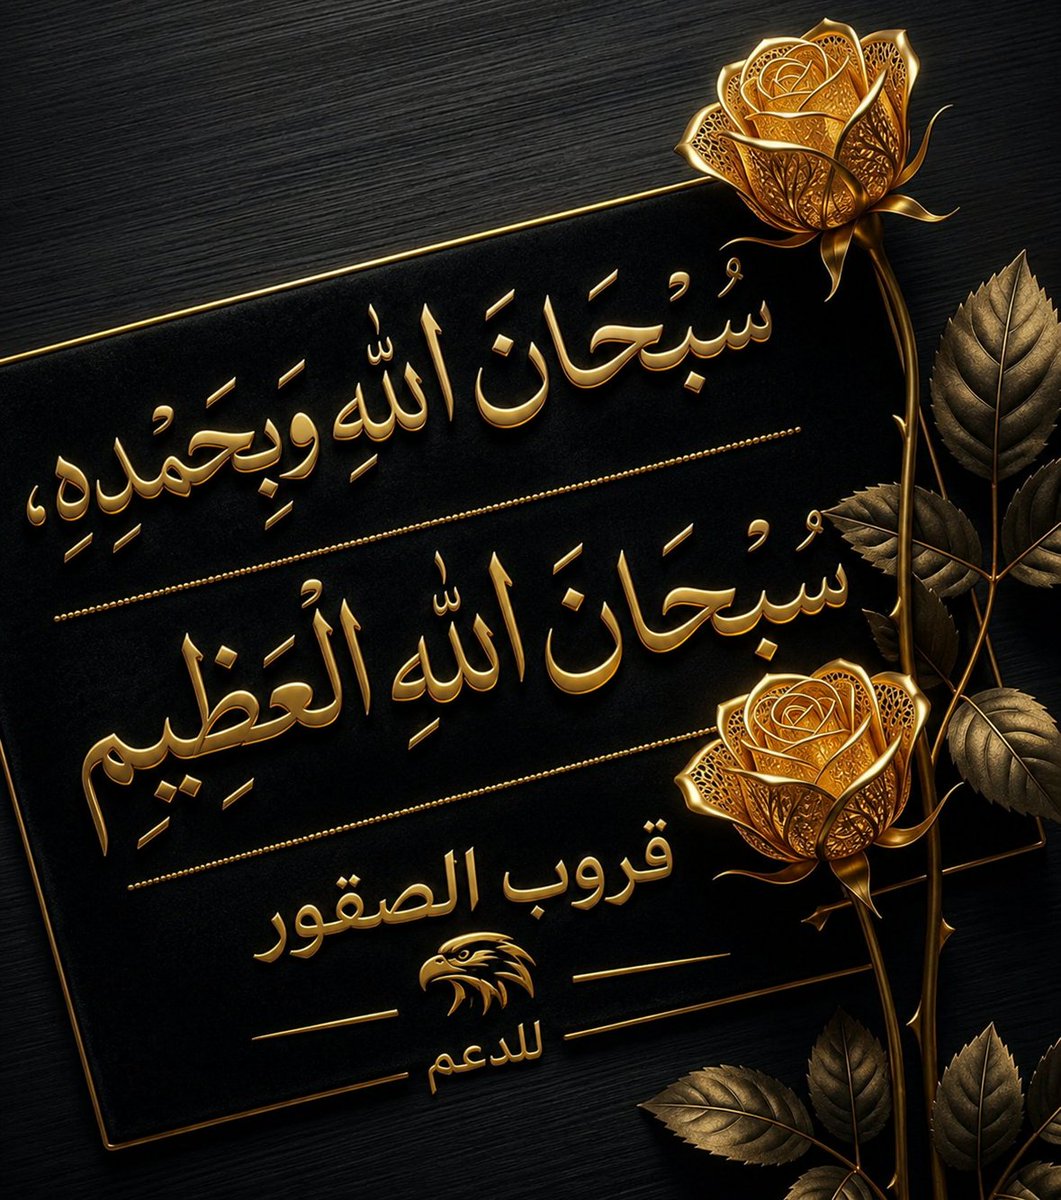 سُبْحَانَ اللّٰهِ وَبِحَمْدِهِ،
سُبْحَانَ اللّٰهِ الْعَظِيمِ
قروب الصقور
للدعم